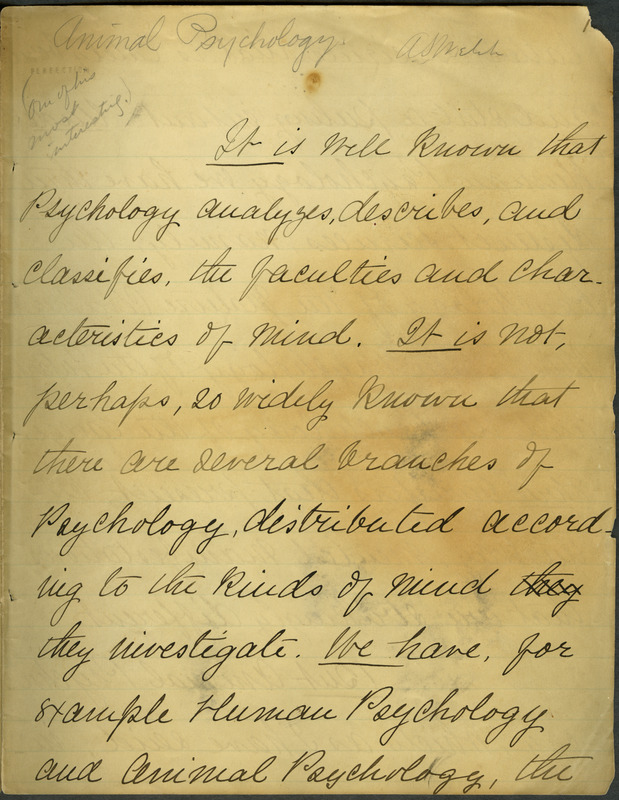 Animal Psychology.
(One of his
most
interesting.)
It is well known that
Psychology analyzes, describes, and
classifies, the faculties and char-
acteristics of mind. It is not,
perhaps, so widely known that
there are several branches of
Psychology, distributed accord-
ing to the kinds of mind they
they investigate. We have, for
example Human Psychology
and Animal Psychology, the